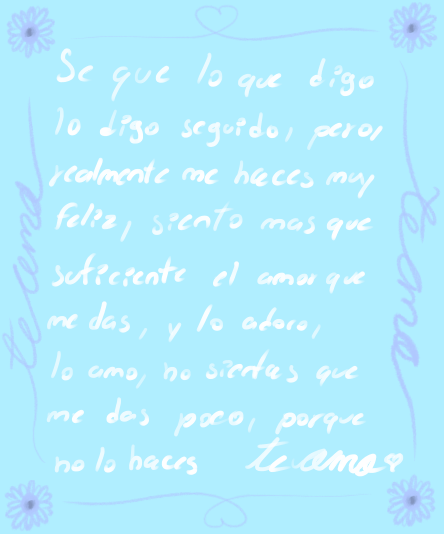 Se que lo que digo
lo digo seguido, pero,
realmente me haces muy
feliz, siento mas que
suficiente el amor que
me das, y lo adoro,
lo amo, no sientas que
me das poco, porque
no lo haces te amo
te amo
te amo